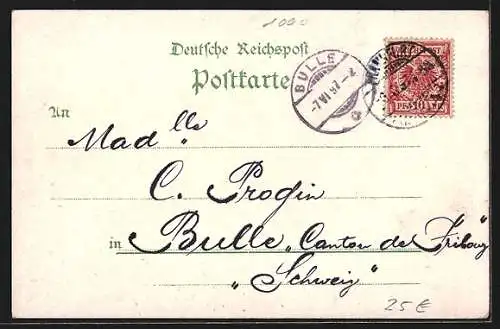 1000
Deutsche Reichspost
Postkarte
BULLE
-7. VI. 97 - 2
An
Mad lle
C. Progin
in Bulle „Canton de Fribourg
„Schweiz"
25€